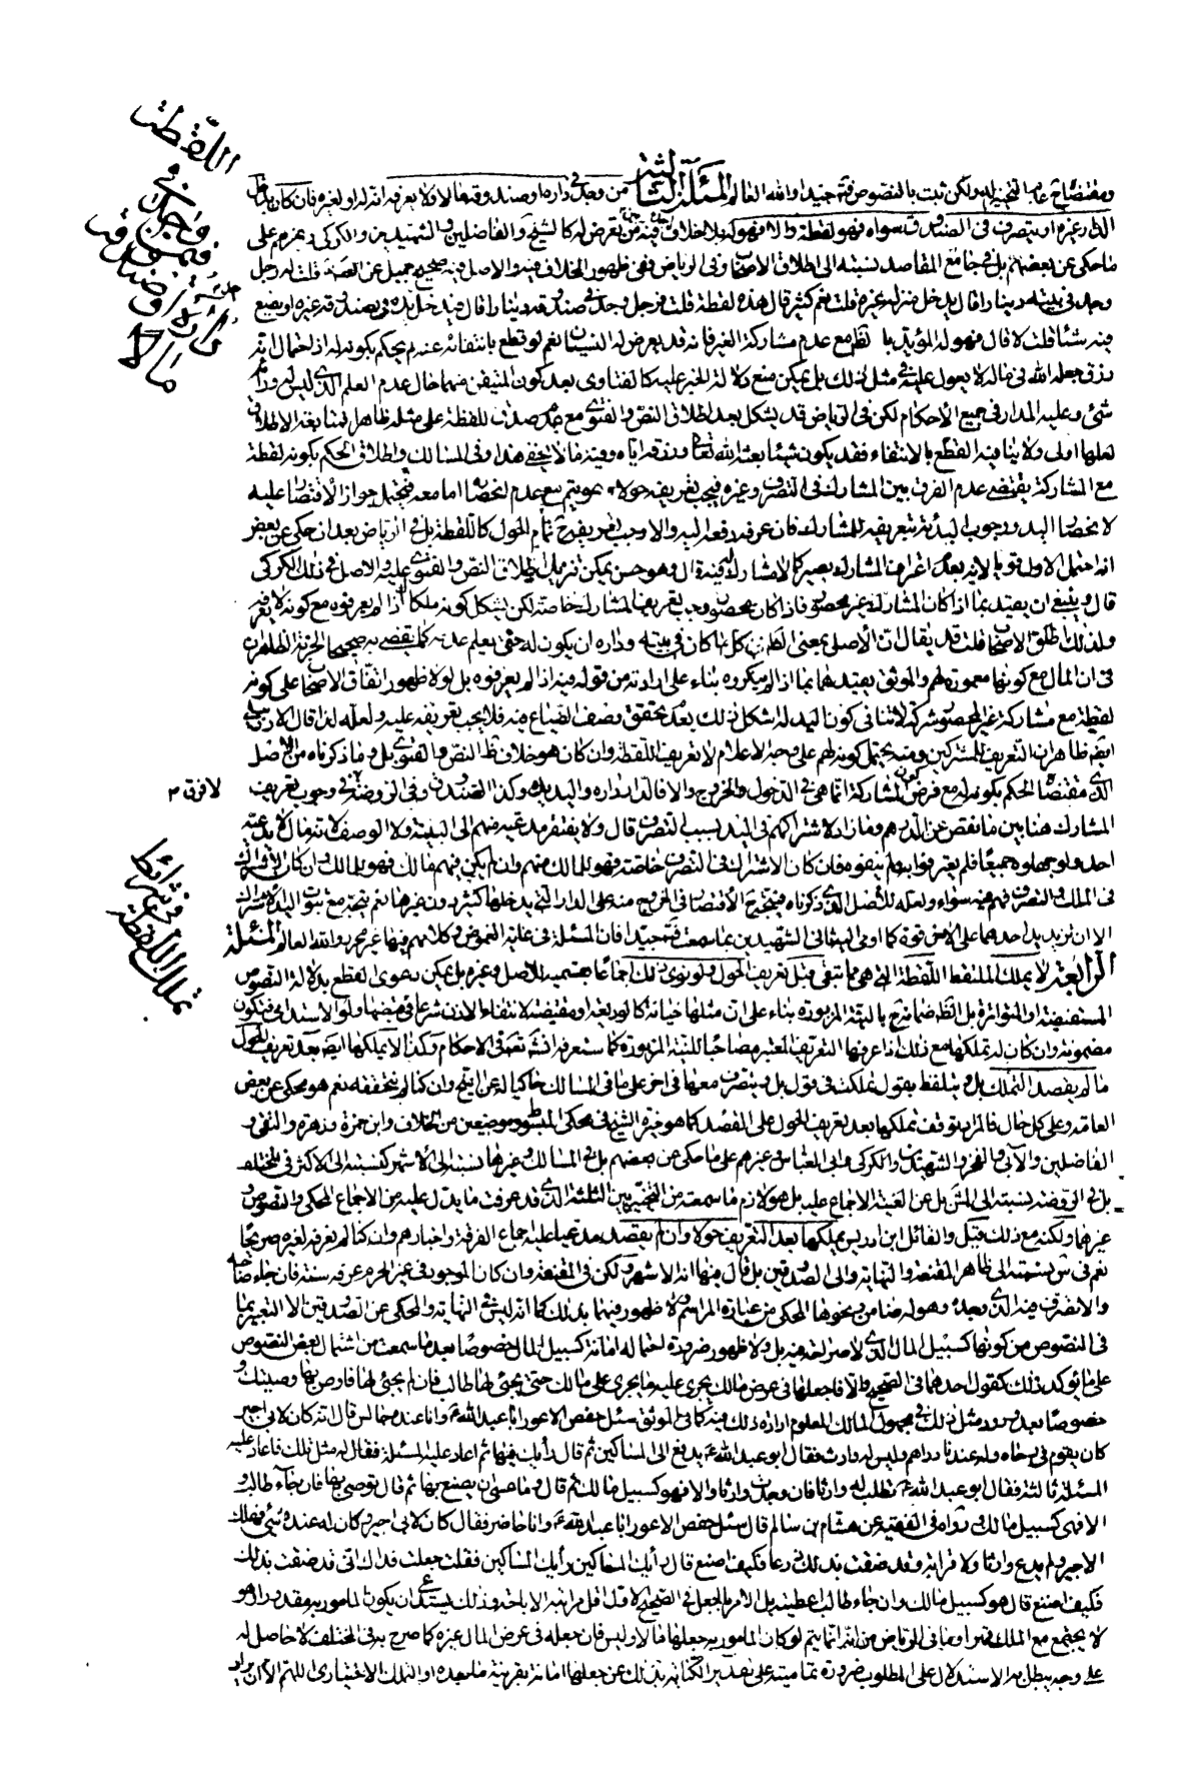 اللقطة
في من وجد في داره او صندوقه مالا
ومقتضاه عدم التخيير له ولكن ثبت بالنصوص فتأمل جيدا والله العالم المسألة الثالثة من وجد في داره او صندوقه مالا ولا يعرفه انه له او لغيره فان كان يدخل
الدار غيره او يتصرف في الصندوق سواه فهو لقطة والا فهو له بلا خلاف اجده فيه ممن تعرض له كالشيخ والفاضلين والشهيدين والكركي وغيرهم على
ما حكي عن بعضهم بل في جامع المقاصد نسبته الى اطلاق الاصحاب وفي الرياض نفى ظهور الخلاف فيه والاصل فيه صحيح جميل عن الصادق قلت له رجل
وجد في بيته دينارا قال يدخل منزله غيره قلت نعم كثير قال هذه لقطة قلت فرجل وجد في صندوقه دينارا قال فيدخل يده في صندوقه غيره او يضع
فيه شيئا قلت لا قال فهو له المؤيد بالظاهر مع عدم مشاركة الغير فانه قد يعرض له النسيان نعم لو قطع بانتفائه عنه لم يحكم بكونه له اذ احتمال انه
رزق جعله الله في ماله لا يعول عليه في مثل ذلك بل يمكن منع دلالة الخبر عليه كالفتاوى بعد كون المتيقن منهما حال عدم العلم الذي ليس وراءه
شيء وعليه المدار في جميع الأحكام لكن في الرياض قد يشكل بعد اطلاق النص والفتوى مع عدم صدق اللقطة على مثله ظاهرا فمتابعة الاطلاق
لعلها اولى ولا ينافيه القطع بالانتفاء فقد يكون شيئا بعثه الله تعالى ورزقه اياه وفيه ما لا يخفى هذا وفي المسالك واطلاق الحكم بكونه لقطة
مع المشاركة يقتضي عدم الفرق بين المشارك في التصرف وغيره فيجب تعريفه حولا وهو يتم مع عدم انحصاره اما معه فيحتمل جواز الاقتصار عليه
لانحصار اليد ووجوب البدأة بتعريفه للمشارك فان عرفه دفعه اليه والا وجب تعريفه تمام الحول كاللقطة بل في الرياض بعد ان حكى عن بعض
انه احتمل الاول قويا لانه بعد اعتراف المشارك يصير كما لا مشارك فيه قال وهو حسن يمكن تنزيل اطلاق النص والفتوى عليه والاصل في ذلك الكركي
قال وينبغي ان يقيد بما اذا كان المشارك غير محصور فاذا كان محصورا وجب تعريف المشارك خاصة لكن يشكل كونه ملكا له اذا لم يعرفوه مع كونه لا يعرفه
ولذلك اطلق الاصحاب قلت قد يقال ان الأصل بمعنى الظاهر ان كل ما كان في بيته وداره ان يكون له حتى يعلم عدمه كما يقضي به صحيحا الخربة الظاهران
في ان المال مع كونها معمورة لهم والموثق بقيدهما بما اذا لم ينكروه بناء على ارادته من قوله فيه اذا لم يعرفوه بل لولا ظهور اتفاق الاصحاب على كونه
لقطة مع مشاركة غير المحصور شركة لا تنافي كون اليد له اشكل ذلك بعدم تحقق وصف الضياع فيه فلا يجب تعريفه عليه ولعله لذا قال الاردبيلي
ايضا ظاهره التعريف للمشتركين ومنه يحتمل كونه لهم على وجه الاعلام لا تعريف اللقطة وان كان هو خلاف ظاهر النص والفتوى بل وما ذكرناه من الاصل
لا فرق م
الذي مقتضاه الحكم بكونه له مع فرض كون المشاركة انما هي في الدخول والخروج والا فالدار داره واليد يده وكذا الصندوق وفي الروضة في وجوب تعريف
المشارك هنا بين ما نقص عن الدرهم وما زاد لاشتراكهم في اليد بسبب التصرف قال ولا يفتقر مدعيه منهم الى البينة ولا الوصف لانه مال لا يدعيه
احد ولو جهلوه جميعا فلم يعترفوا به ولم ينفوه فان كان الاشتراك في التصرف خاصة فهو للمالك منهم وان لم يكن فيهم مالك فهو للمالك وان كان الاشتراك
في الملك والتصرف فهم فيه سواء ولعله للأصل الذي ذكرناه فيتجه الاقتصار في الخروج منه على الدار التي يدخلها كثير دون غيرها نعم يتجه مع ثبوت اليد الاشتراك
الا ان تزيد يد احدهما على الاخر قوة كما اومى اليه ثاني الشهيدين بما سمعت فتأمل جيدا فان المسألة في غاية الغموض وكلامهم فيها غير محرر والله العالم المسئلة
في شرائط تملك اللقطة
الرابعة لا يملك الملتقط اللقطة التي هي مما تبقى قبل تعريف الحول ولو نوى ذلك اجماعا بقسميه للاصل وغيره بل يمكن دعوى القطع بدلالة النصوص
المستفيضة او المتواترة بل الظاهر ضمانه بالنية المزبورة بناء على ان مثلها خيانة كالوديعة او مقتضية لانتفاء الاذن شرعا في قبضها ولو الاستدامي فتكون
مضمونة وان كان له تملكها مع ذلك اذا عرفها التعريف المعتبر مصاحبا للنية المزبورة كما ستعرفه انشاء الله تعالى في الاحكام وكذا لا يملكها ايضا بعد تعريف الحول
ما لم يقصد التملك بل ويتلفظ بقول تملكت في قول بل ويتصرف معها في اخر على ما في المسالك حاكيا له عن الشيخ وان كنا لم نتحققه نعم هو محكي عن بعض
العامة وعلى كل حال فالمراد توقف تملكها بعد تعريف الحول على القصد كما هو خيرة الشيخ في محكي المبسوط وموضعين من الخلاف وابن حمزة وزهرة والتقي و
الفاضلين والآبي والفخر والشهيدين والكركي وابي العباس وغيرهم على ما حكي عن بعضهم بل في المسالك وغيرها نسبته الى الاشهر كنسبته الى الاكثر في المختلف
بل في الروضة نسبته الى المشهور بل عن الغنية الاجماع عليه بل هو لازم ما سمعته من التخيير بين الثلثة الذي قد عرفت ما يدل عليه من الاجماع المحكي والنصوص و
غيرهما ولكنه مع ذلك قيل والقائل ابن ادريس يملكها بعد التعريف حولا وان لم يقصد مدعيا عليه اجماع الفرقة واخبارهم وان كنا لم نعرفه لغيره صريحا
نعم في س نسبته الى ظاهر المقنعة والنهاية والى الصدوقين بل قال فيها انه الاشهر ولكن في المقنعة وان كان الموجود في غير الحرم عرفه سنة فان جاء صاحبه
والا تصرف فيه الذي وجده وهو له ضامن ونحوها المحكي من عبارة المراسم ولا ظهور فيهما بذلك كما انه ليس في النهاية والمحكي عن الصدوقين الا التعبير بما
في النصوص من كونها كسبيل المال الذي لا صراحة فيه بل ولا ظهور ضرورة احتماله امانة كسبيل المال خصوصا بعد ما سمعت من اشتمال بعض النصوص
على ما يؤكد ذلك كقول احدهما في الصحيح والا فاجعلها في عرض مالك يجري عليه ما يجري على مالك حتى يجئ لها طالب فان لم يجئ لها فاوص بها في وصيتك و
خصوصا بعد ورود مثل ذلك في مجهول المالك المعلوم ارادة ذلك فيه كما في الموثق سئل حفص الاعور ابا عبد الله ع وانا عنده جالس قال انه كان لابي اجير
كان يقوم في رحاه وله عندنا دراهم وليس له وارث فقال ابو عبد الله ع يدفع الى المساكين ثم قال رأيك فيها ثم اعاد عليه المسئلة فقال له مثل ذلك فاعاد عليه
المسئلة ثالثة فقال ابو عبد الله ع تطلب له وارثا فان وجدت وارثا والا فهو كسبيل مالك ثم قال وما عسى ان يصنع بها ثم قال توصي بها فان جاء طالب و
الا فهي كسبيل مالك وفي رواه في الفقيه عن هشام بن سالم قال سئل حفص الاعور ابا عبد الله ع وانا حاضر فقال كان لابي اجير وكان له عنده شيء فهلك
الاجير ولم يدع وارثا ولا قرابة وقد ضقت بذلك ذرعا فكيف اصنع قال رأيك المساكين رأيك المساكين فقلت جعلت فداك اني قد ضقت بذلك
فكيف اصنع قال هو كسبيل مالك وان جاء طالب اعطيته بل الامر بالجعل في الصحيح الاول اقل مراتبه الاباحة وذلك يستدعي ان يكون المأمور به مقدورا وهو
لا يجتمع مع الملك قهرا وما في الرياض من انه انما يتم لو كان المأمور به جعلها مالا وليس فان جعله في عرض المال غيره كما صرح به في المختلف لا حاصل له
على وجه يبطل به الاستدلال على المطلوب ضرورة تماميته على تقدير الكناية بذلك عن جعلها امانة بقرينة ما بعده او التملك الاختياري اللهم الا ان يراد